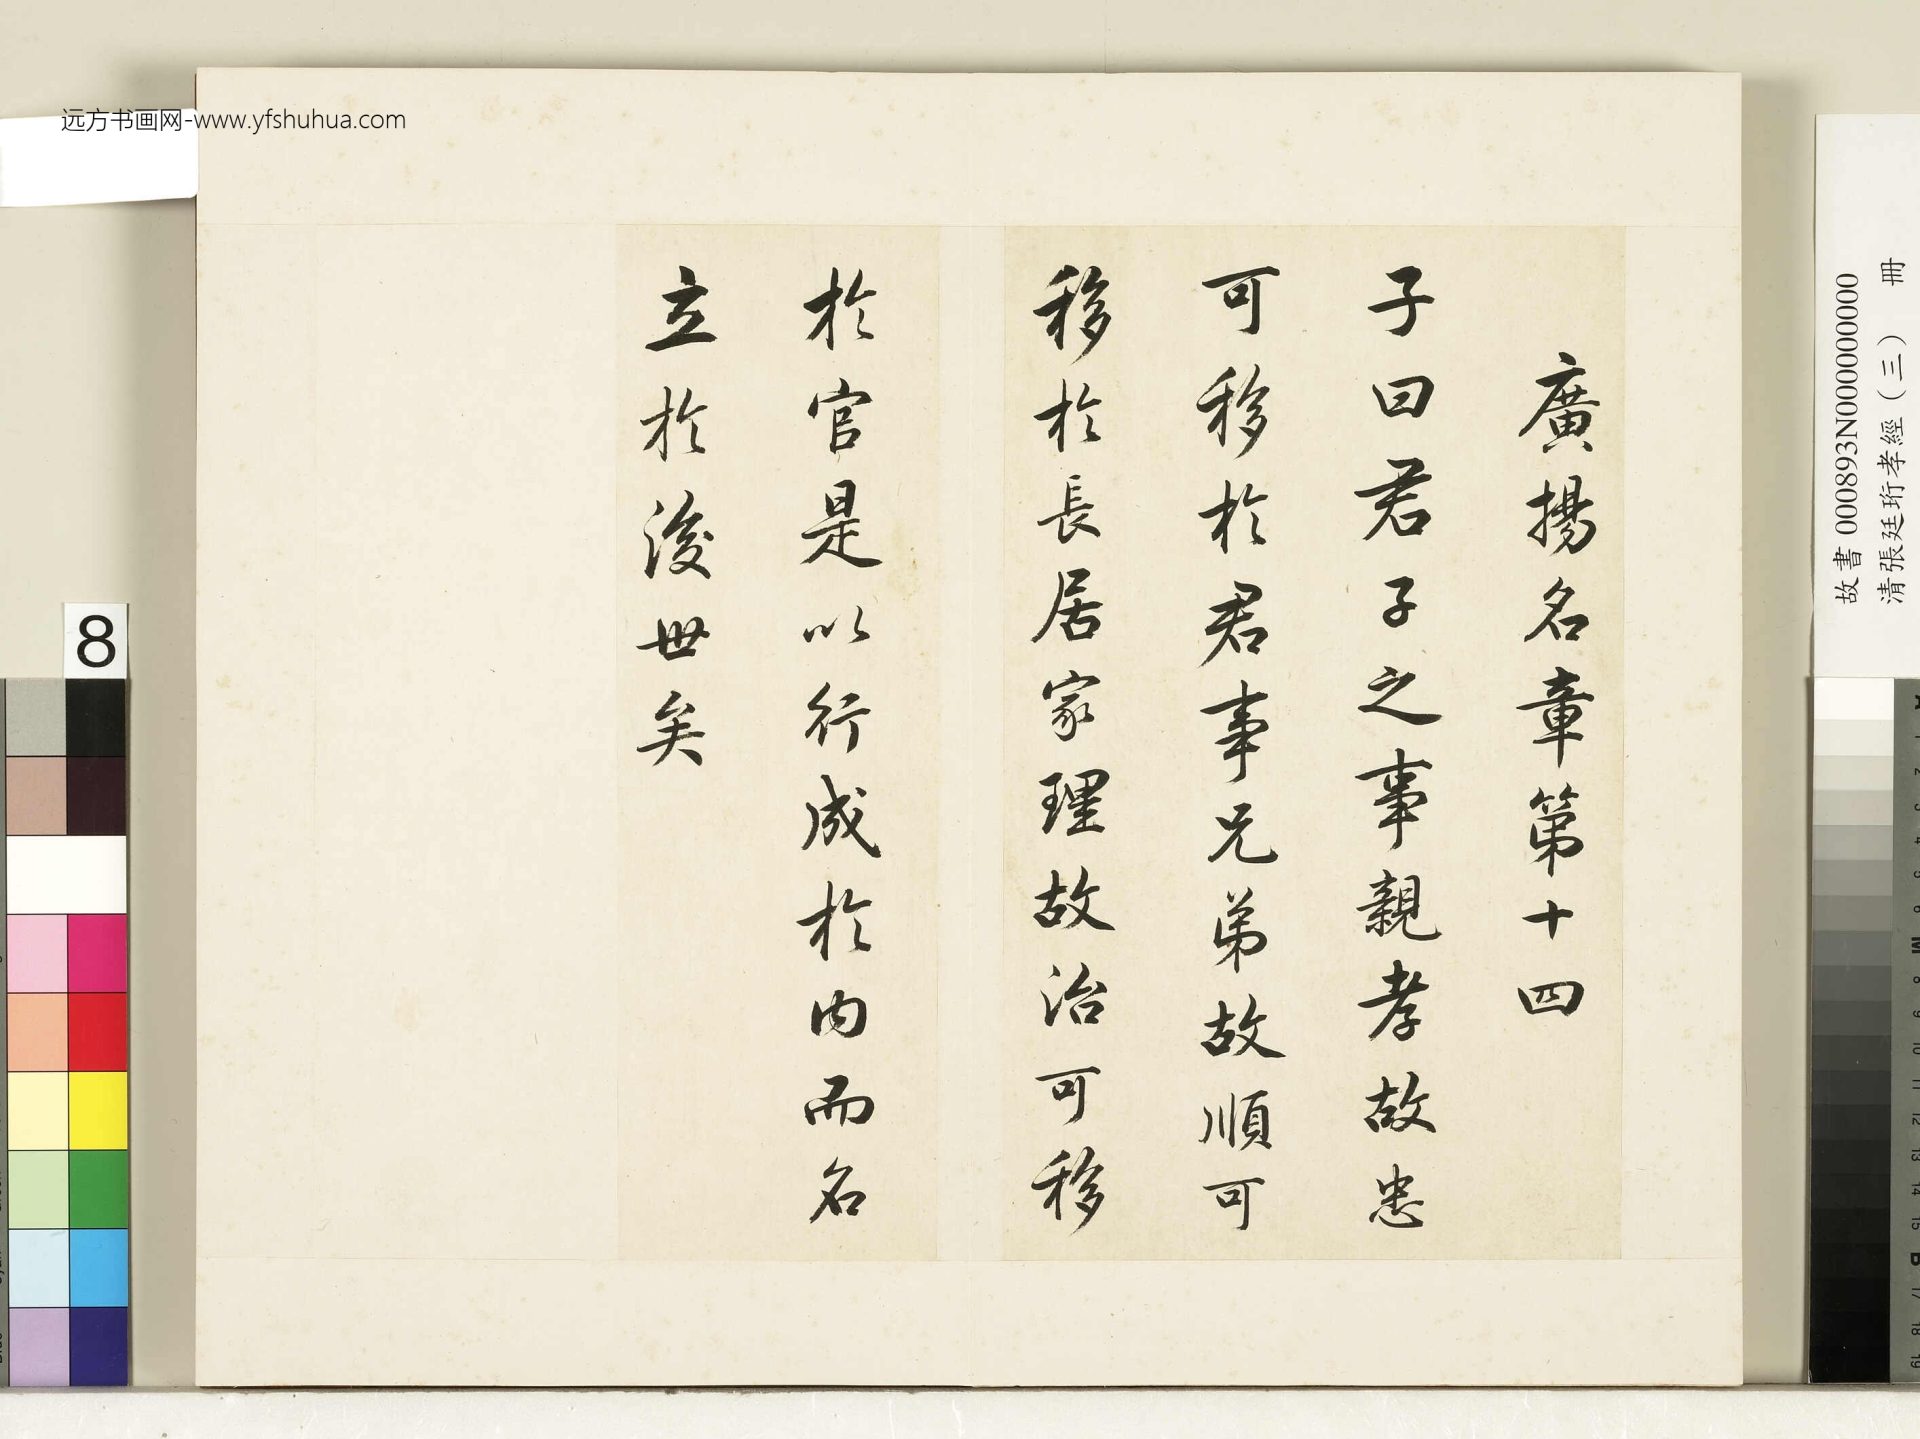 廣揚名章第十四
子曰君子之事親孝故忠
可移於君事兄弟故順可
移於長居家理故治可移
於官是以行成於内而名
立於後世矣
远方书画网-www.yfshuhua.com
故書 000893N000000000
清張廷珩孝經（三） 冊
8